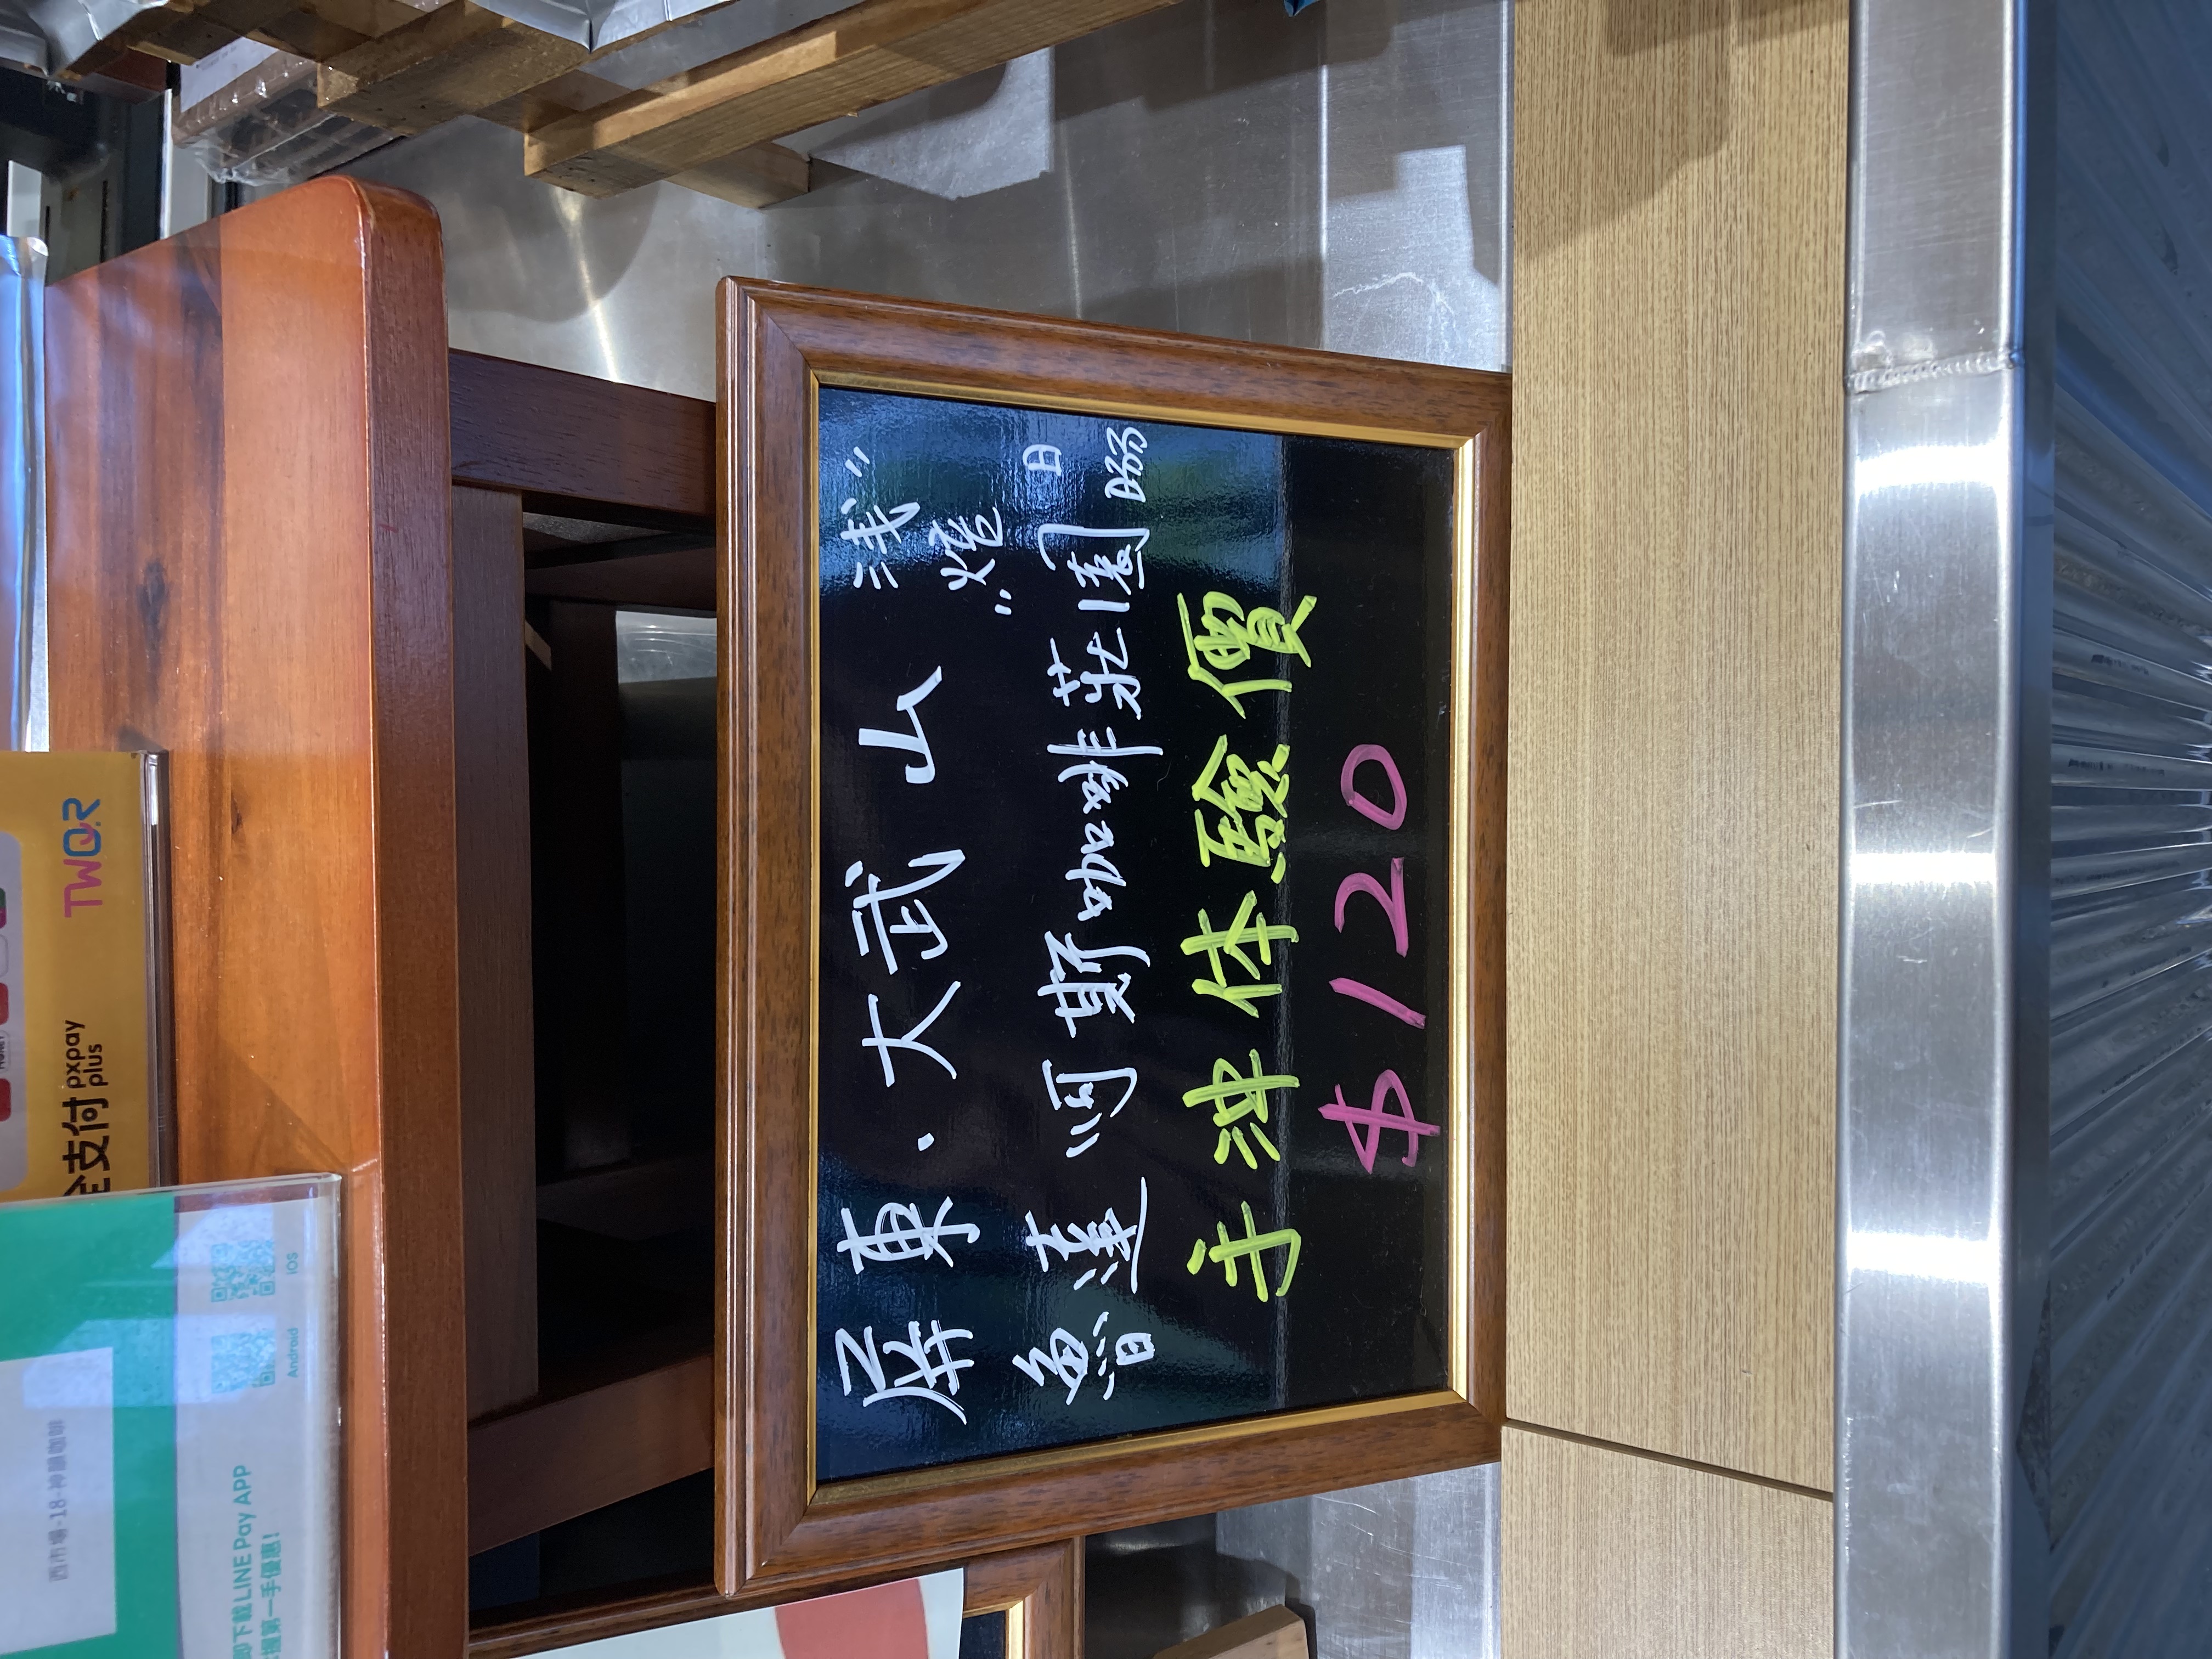 西市場-18-神韻咖啡
即下載LINE Pay APP
握第一手優惠!
Android
iOS
全支付 pxpay plus
TWQR
屏東·大武山 浅"
"焙
魯達呵斯咖啡莊園 日
手沖体驗價
$120